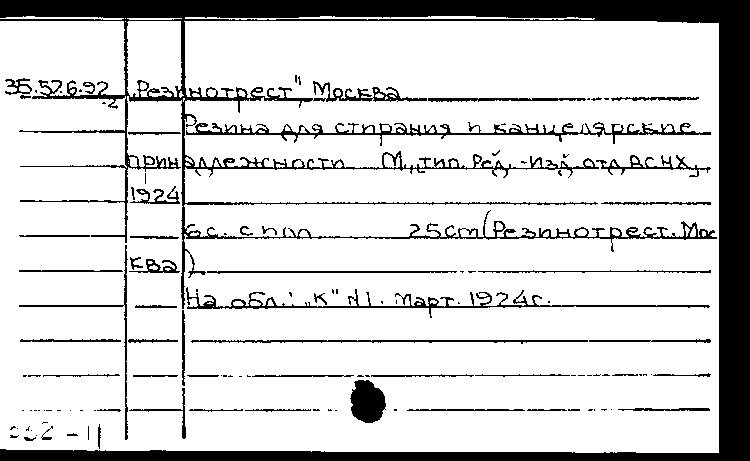 35.57.6.92 „Резинотрест", Москва
-2
Резина для стирания и канцелярские
принадлежности М., [тип. Ред.-Изд. отд. ВСНХ],
1924
6 с. с илл 25 cm (Резинотрест. Мос
ква).
На обл.: „К" №1. Март. 1924 г.